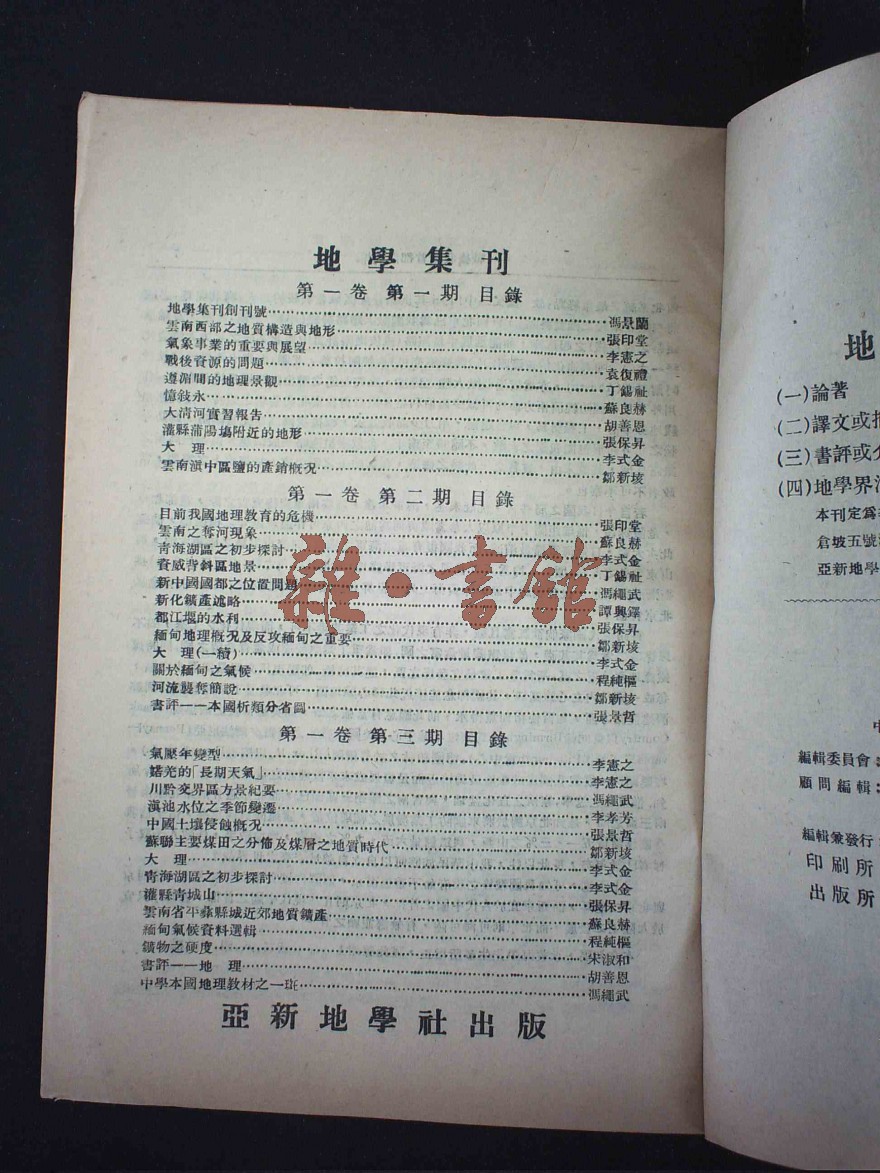 地學集刊
第一卷 第一期 目錄
地學集刊創刊號…馮景蘭
雲南西部之地質構造與地形…張印堂
氣象事業的重要與展望…李憲之
戰後資源的問題…袁復禮
遵湄間的地理景觀…丁錫祉
憶敍永…蘇良赫
大清河實習報告…胡善恩
灌縣蒲陽場附近的地形…張保昇
大 理…李式金
雲南滇中區鹽的產銷概況…鄒新垓
第一卷 第二期 目錄
目前我國地理教育的危機…張印堂
雲南之奪河現象…蘇良赫
青海湖區之初步探討…李式金
資威背斜區地景…丁錫祉
新中國國都之位置問題…馮繩武
新化鑛產述略…譚興鐸
都江堰的水利…張保昇
緬甸地理概況及反攻緬甸之重要…鄒新垓
大 理(一續)…李式金
關於緬甸之氣候…程純樞
河流襲奪簡說…鄒新垓
書評——本國析類分省圖…張景哲
第一卷 第三期 目錄
氣壓年變型…李憲之
諾光的「長期天氣」…李憲之
川黔交界區方景紀要…馮繩武
滇池水位之季節變遷…李孝芳
中國土壤侵蝕概況…張景哲
蘇聯主要煤田之分佈及煤層之地質時代…鄒新垓
大 理…李式金
青海湖區之初步探討…李式金
灌縣青城山…張保昇
雲南省平彝縣城近郊地質鑛產…蘇良赫
緬甸氣候資料選輯…程純樞
鑛物之硬度…宋淑和
書評——地 理…胡善恩
中學本國地理教材之一斑…馮繩武
亞新地學社出版
雜·書館
地
(一)論著
(二)譯文或
(三)書評或
(四)地學界
本刊定爲
倉坡五號
亞新地學
中
編輯委員會:
顧問編輯:
編輯兼發行
印刷所
出版所